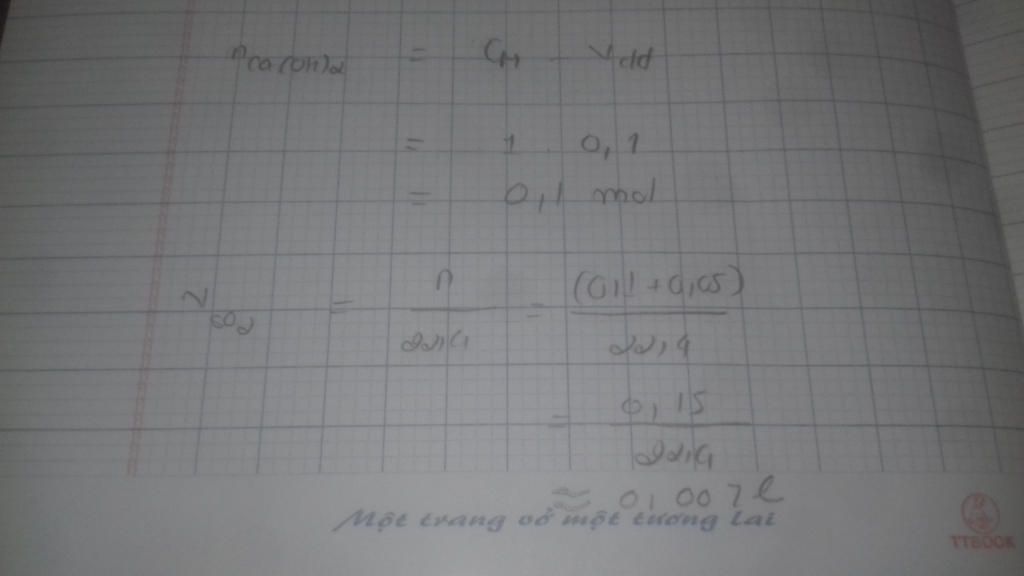 nCa(OH)2 = CM . Vdd
= 1 . 0,1
= 0,1 mol
VSO2 = n / 22,4 = (0,1 + 0,05) / 22,4
= 0,15 / 22,4
≈ 0,007 l
Một trang vở một tương lai
TTBOOK